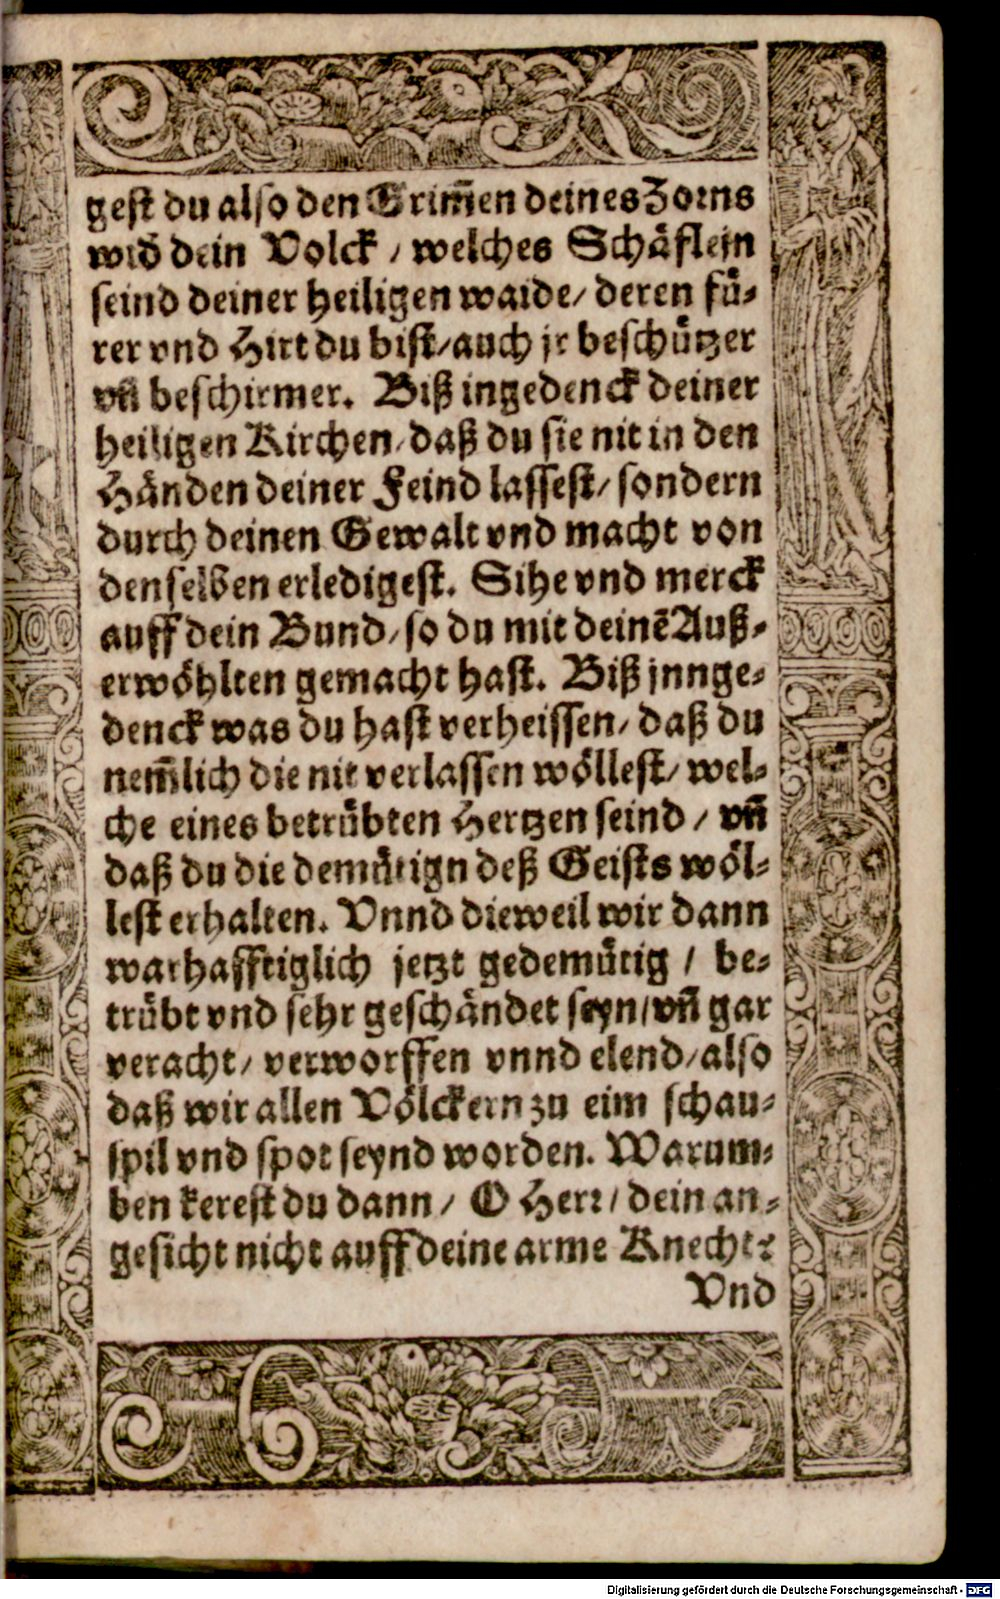 gest du also den Grim̃en deines Zorns
wid̃ dein Volck / welches Schäflein
seind deiner heiligen waide / deren fü-
rer vnd Hirt du bist / auch jr beschützer
vñ beschirmer. Biß ingedenck deiner
heiligen Kirchen / daß du sie nit in den
Händen deiner Feind lassest / sondern
durch deinen Gewalt vnd macht von
denselben erledigest. Sihe vnd merck
auff dein Bund / so du mit deinē Auß-
erwöhlten gemacht hast. Biß jnnge-
denck was du hast verheissen / daß du
nem̃lich die nit verlassen wöllest / wel-
che eines betrübten Hertzen seind / vñ
daß du die demütign deß Geists wöl-
lest erhalten. Vnnd dieweil wir dann
warhafftiglich jetzt gedemütig / be-
trübt vnd sehr geschändet seyn / vñ gar
veracht / verworffen vnnd elend / also
daß wir allen Völckern zu eim schau-
spil vnd spot seynd worden. Warum-
ben kerest du dann / O Herr / dein an-
gesicht nicht auff deine arme Knecht?
Vnd
Digitalisierung gefördert durch die Deutsche Forschungsgemeinschaft - DFG